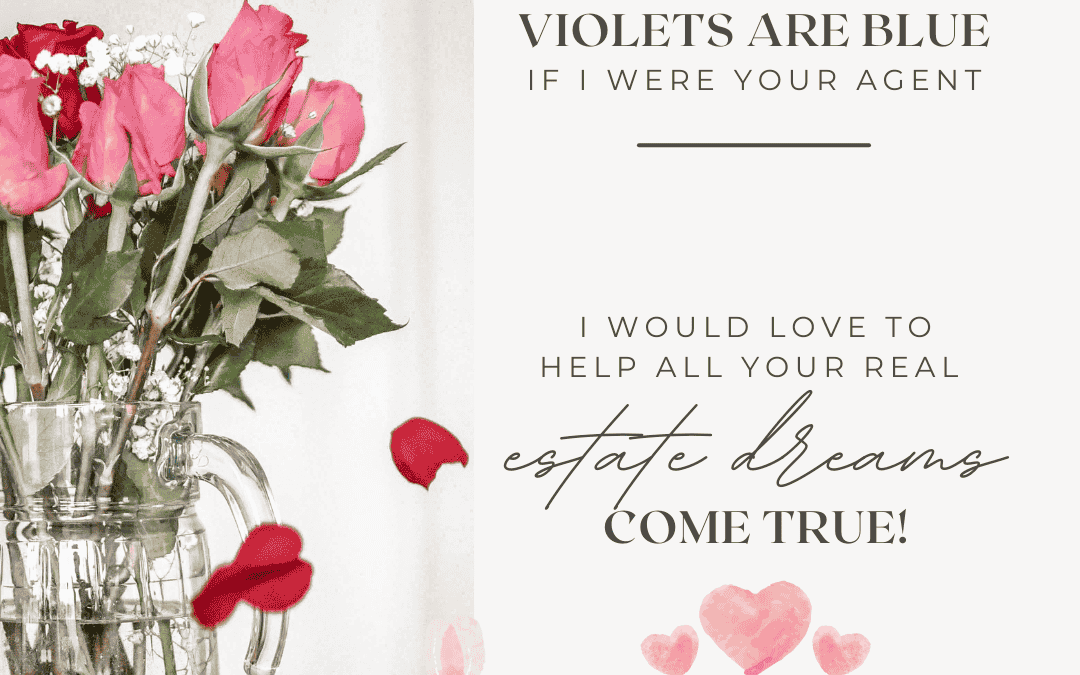 VIOLETS ARE BLUE
IF I WERE YOUR AGENT
I WOULD LOVE TO
HELP ALL YOUR REAL
estate dreams
COME TRUE!